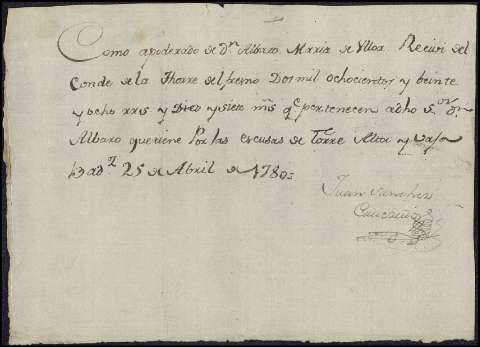 Como apoderado de Dn Albaro Maria de Vlloa Recivi del
Conde de la Thorre del fresno Dos mil ochocientos y beinte
y ocho rrs y Diez y siete ms qe pertenecen adho Sor Dn
Albaro que tiene Por las escusas de Torre Alta y vaja
25 de Abril de 1780=
Juan Sanchez